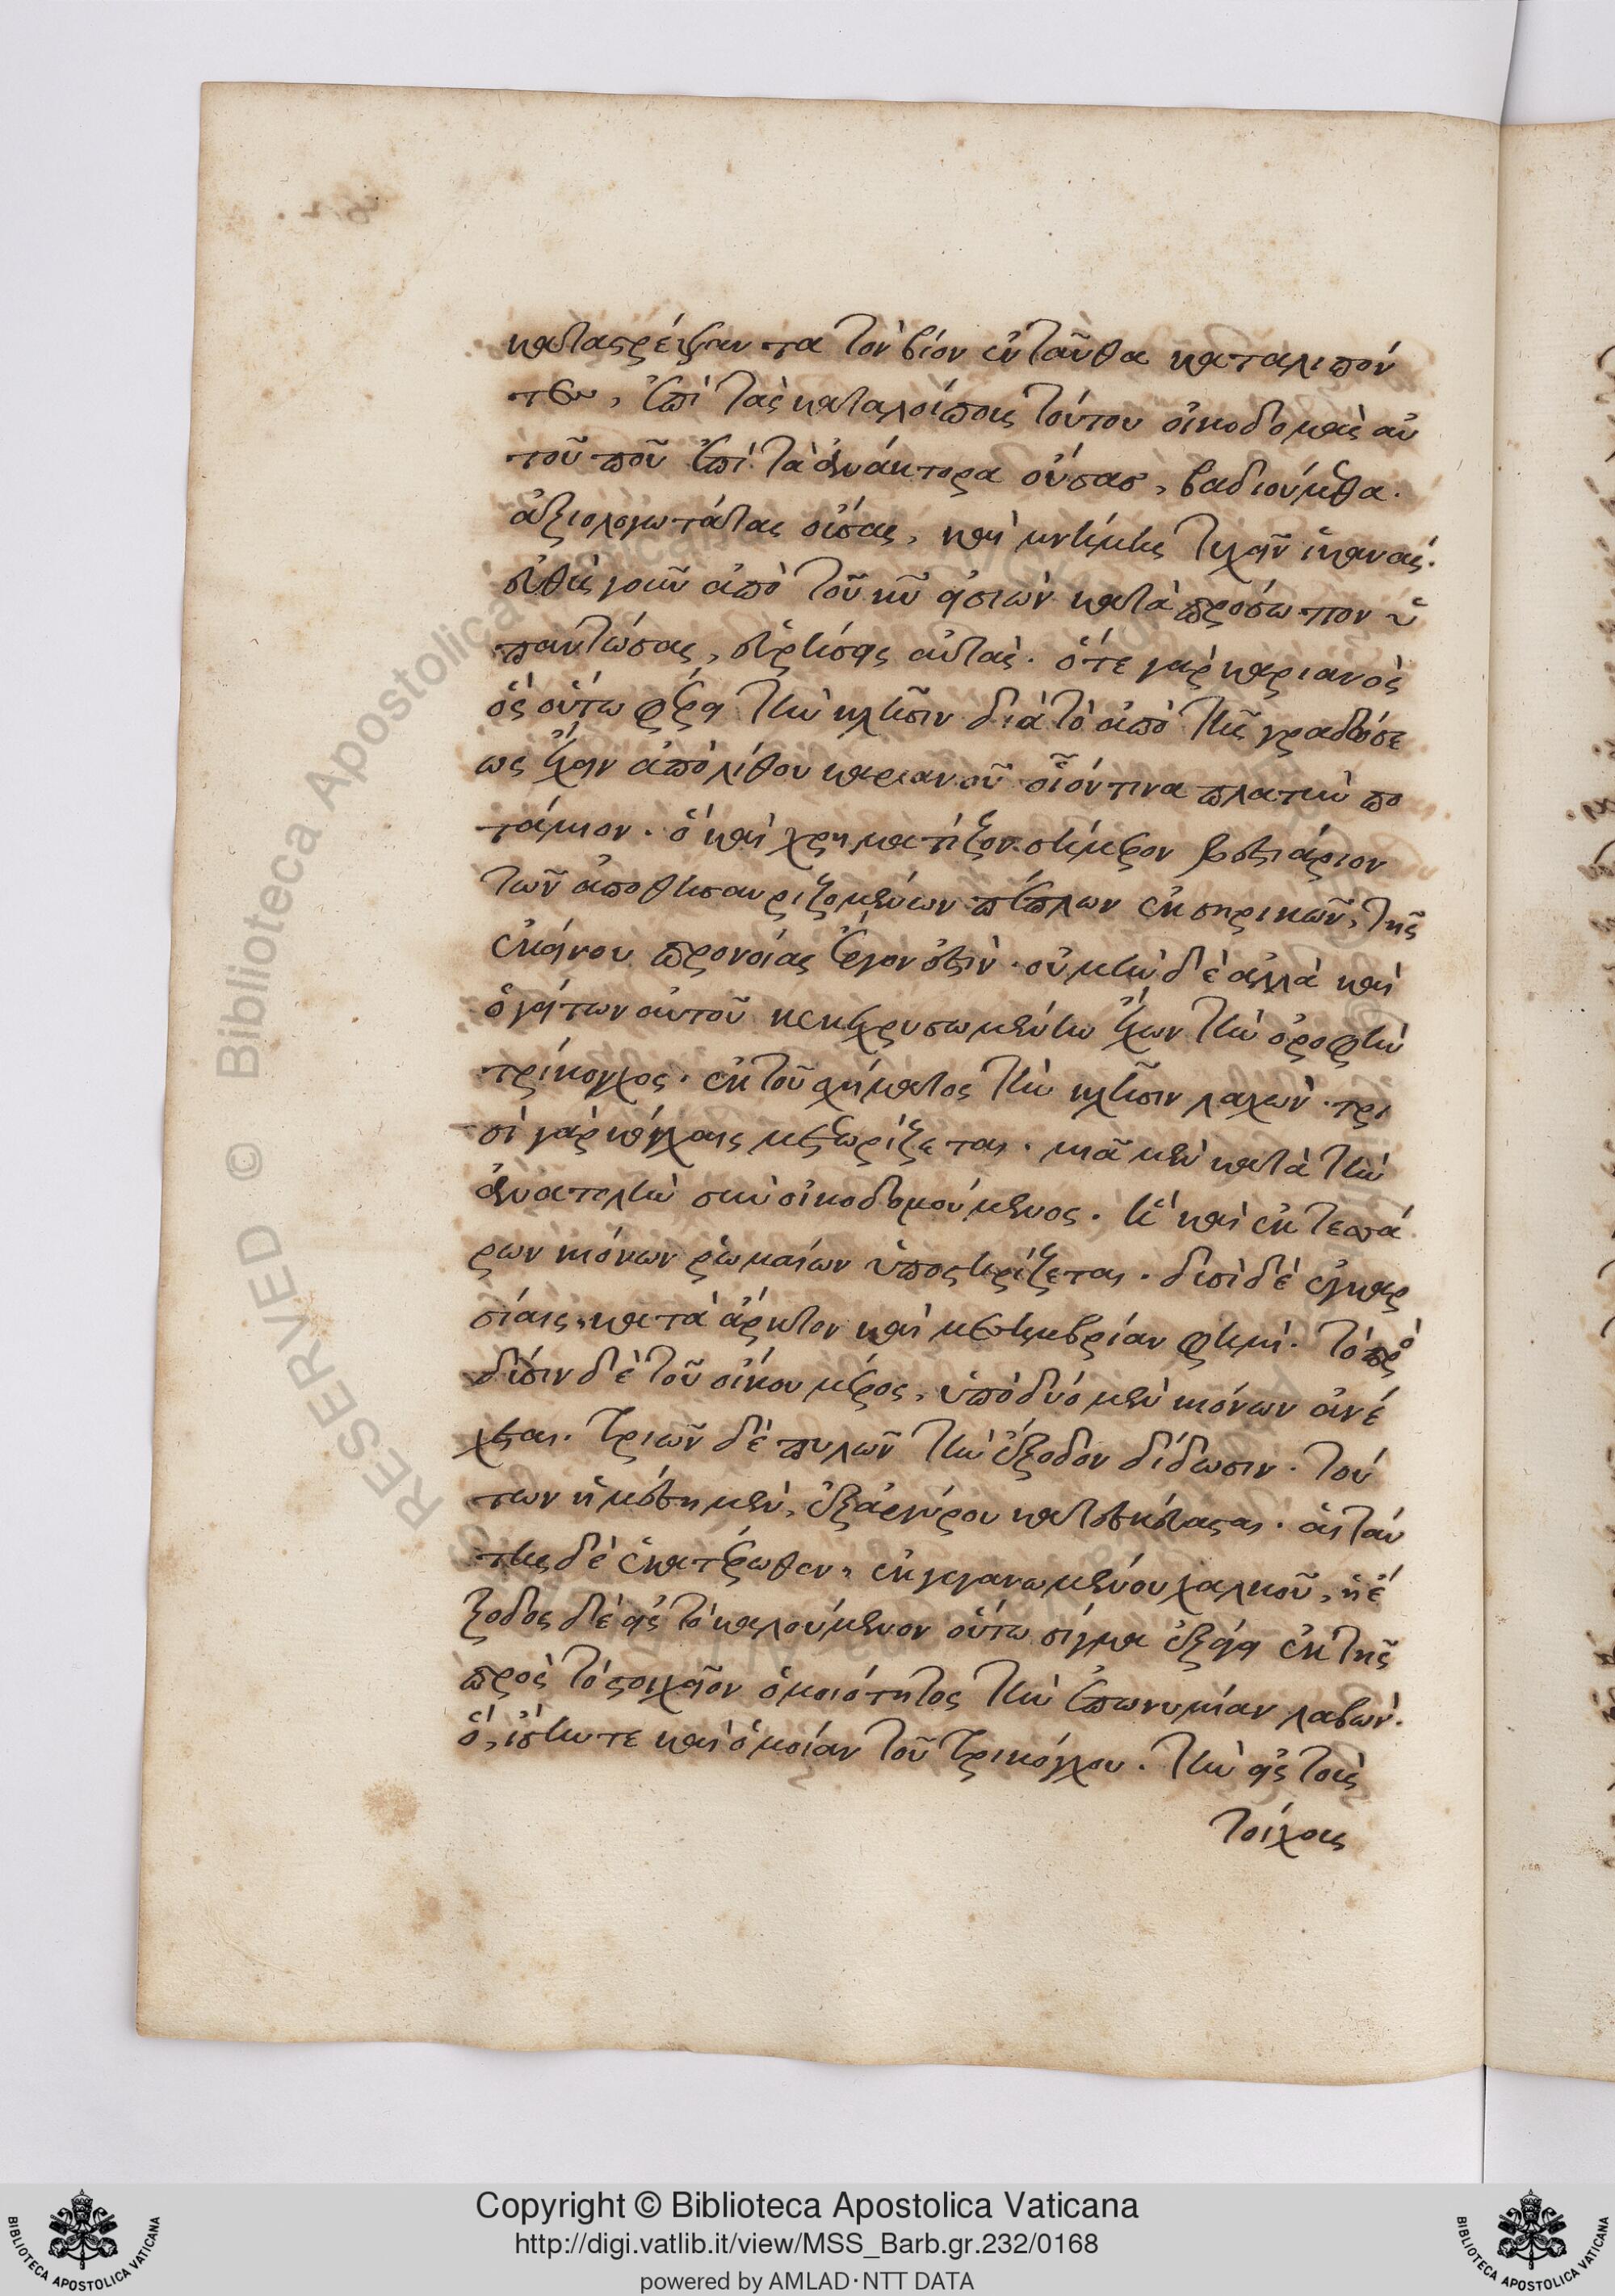 καταστρέψαντα τὸν βίον ἐνταῦθα καταλιπόν
τες, ἐπὶ τὰς καταλοίπους τούτου οἰκοδομὰς αὐ
τοῦ που ἐπὶ τὰ ἀνάκτορα οὔσας, βαδιούμεθα.
ἀξιολογωτάτας οὔσας, καὶ μνήμης τυχεῖν ἱκανάς.
εὐθὺς γοῦν ἀπὸ τοῦ νῦν εἰσιὼν κατὰ πρόσωπον ὑ
παντώσας, εὑρήσεις αὐτάς. ὅτε γὰρ καριανὸς
ὃς οὕτω φέρει τὴν κλῆσιν διὰ τὸ ἀπὸ τῆς γραδώσε
ως ἔχειν ἀπὸ λίθου καριανοῦ οἷόν τινα πλατὺν πο
τάμιον. ὃ καὶ χρηματίζον σήμερον βεστιάριον
τῶν ἀποθησαυριζομένων πέπλων ἐκ σηρικῶν, τῆς
ἐκείνου προνοίας ἔργον ἐστίν. οὐ μὴν δὲ ἀλλὰ καὶ
ὁ γείτων αὐτοῦ κεκχρυσωμένην ἔχων τὴν ὀροφὴν
τρίκογχος. ἐκ τοῦ σχήματος τὴν κλῆσιν λαχών. τρι
σὶ γὰρ κόγχαις μετεωρίζεται. μιᾶ μὲν κατὰ τὴν
ἀνατολὴν συνοικοδομούμενος. ἣ καὶ ἐκ τεσσά
ρων κιόνων ῥωμαίων ὑποστηρίζεται. δυσὶ δὲ ἐγκαρ
σίαις, κατὰ ἄρκτον καὶ μεσημβρίαν φημί. τὸ πρὸ
δύσιν δὲ τοῦ οἴκου μέρος, ὑπὸ δύο μὲν κιόνων ἀνέ
χεται. τριῶν δὲ πυλῶν τὴν ἔξοδον δίδωσιν. τού
των ἡ μέση μὲν, ἐξ ἀργύρου κατεσκεύασται. αἱ ταύ
της δὲ ἑκατέρωθεν, ἐκ γεγανωμένου χαλκοῦ, ἡ ἔ
ξοδος δὲ εἰς τὸ καλούμενον οὕτω σίγμα ἐξάγει ἐκ τῆς
πρὸς τὸ στοιχεῖον ὁμοιότητος τὴν ἐπωνυμίαν λαβών.
ὃ, ἴσην τε καὶ ὁμοίαν τοῦ τρικόγχου. τὴν εἰς τοὺς
τοίχους
Copyright © Biblioteca Apostolica Vaticana
http://digi.vatlib.it/view/MSS_Barb.gr.232/0168
powered by AMLAD·NTT DATA